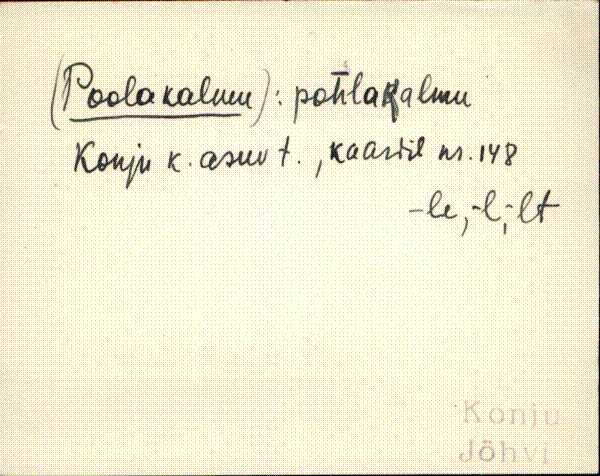 (Poolakalmu): pol̀lakalmu
Konju k. asuv t., kaardil nr. 148
-le, -l, -lt
Konju
Jõhvi